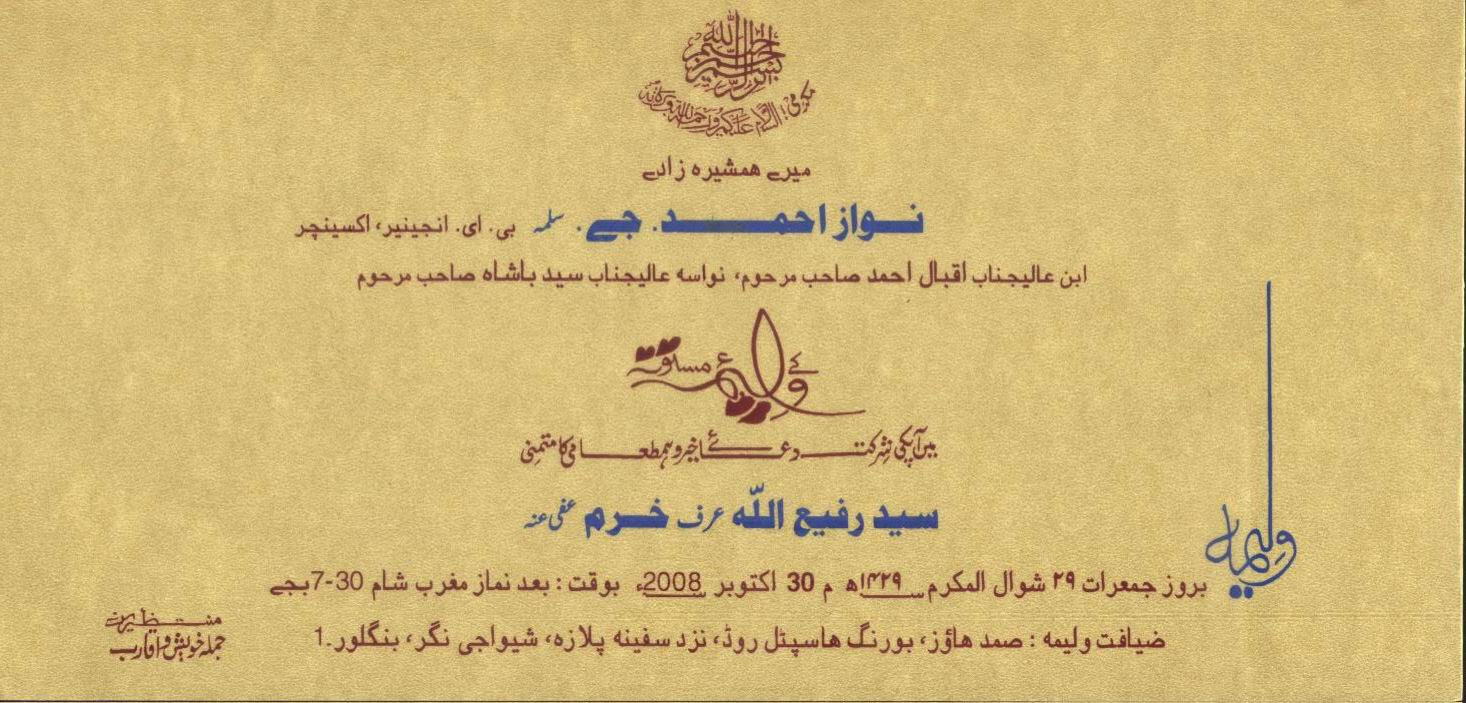 بسم اللہ الرحمن الرحیم
مکرمی! السلام علیکم ورحمۃ اللہ وبرکاتہ
میرے ھمشیرہ زادے
نواز احمد. جے. سلمہ بی. ای. انجینیر، اکسینچر
ابن عالیجناب اقبال احمد صاحب مرحوم، نواسہ عالیجناب سید باشاہ صاحب مرحوم
کے ولیمۂ مسنونہ
میں آپکی شرکت دعائے خیر و ہمطعامی کا متمنی
سید رفیع اللہ عرف خرم عفی عنہ
ولیمہ
بروز جمعرات ۲۹ شوال المکرم ۱۴۲۹ھ م 30 اکتوبر 2008ء بوقت : بعد نماز مغرب شام 30-7بجے
ضیافت ولیمہ : صمد ھاؤز، بورنگ ھاسپٹل روڈ، نزد سفینہ پلازہ، شیواجی نگر، بنگلور.1
منتظرین
جملہ خویش و اقارب